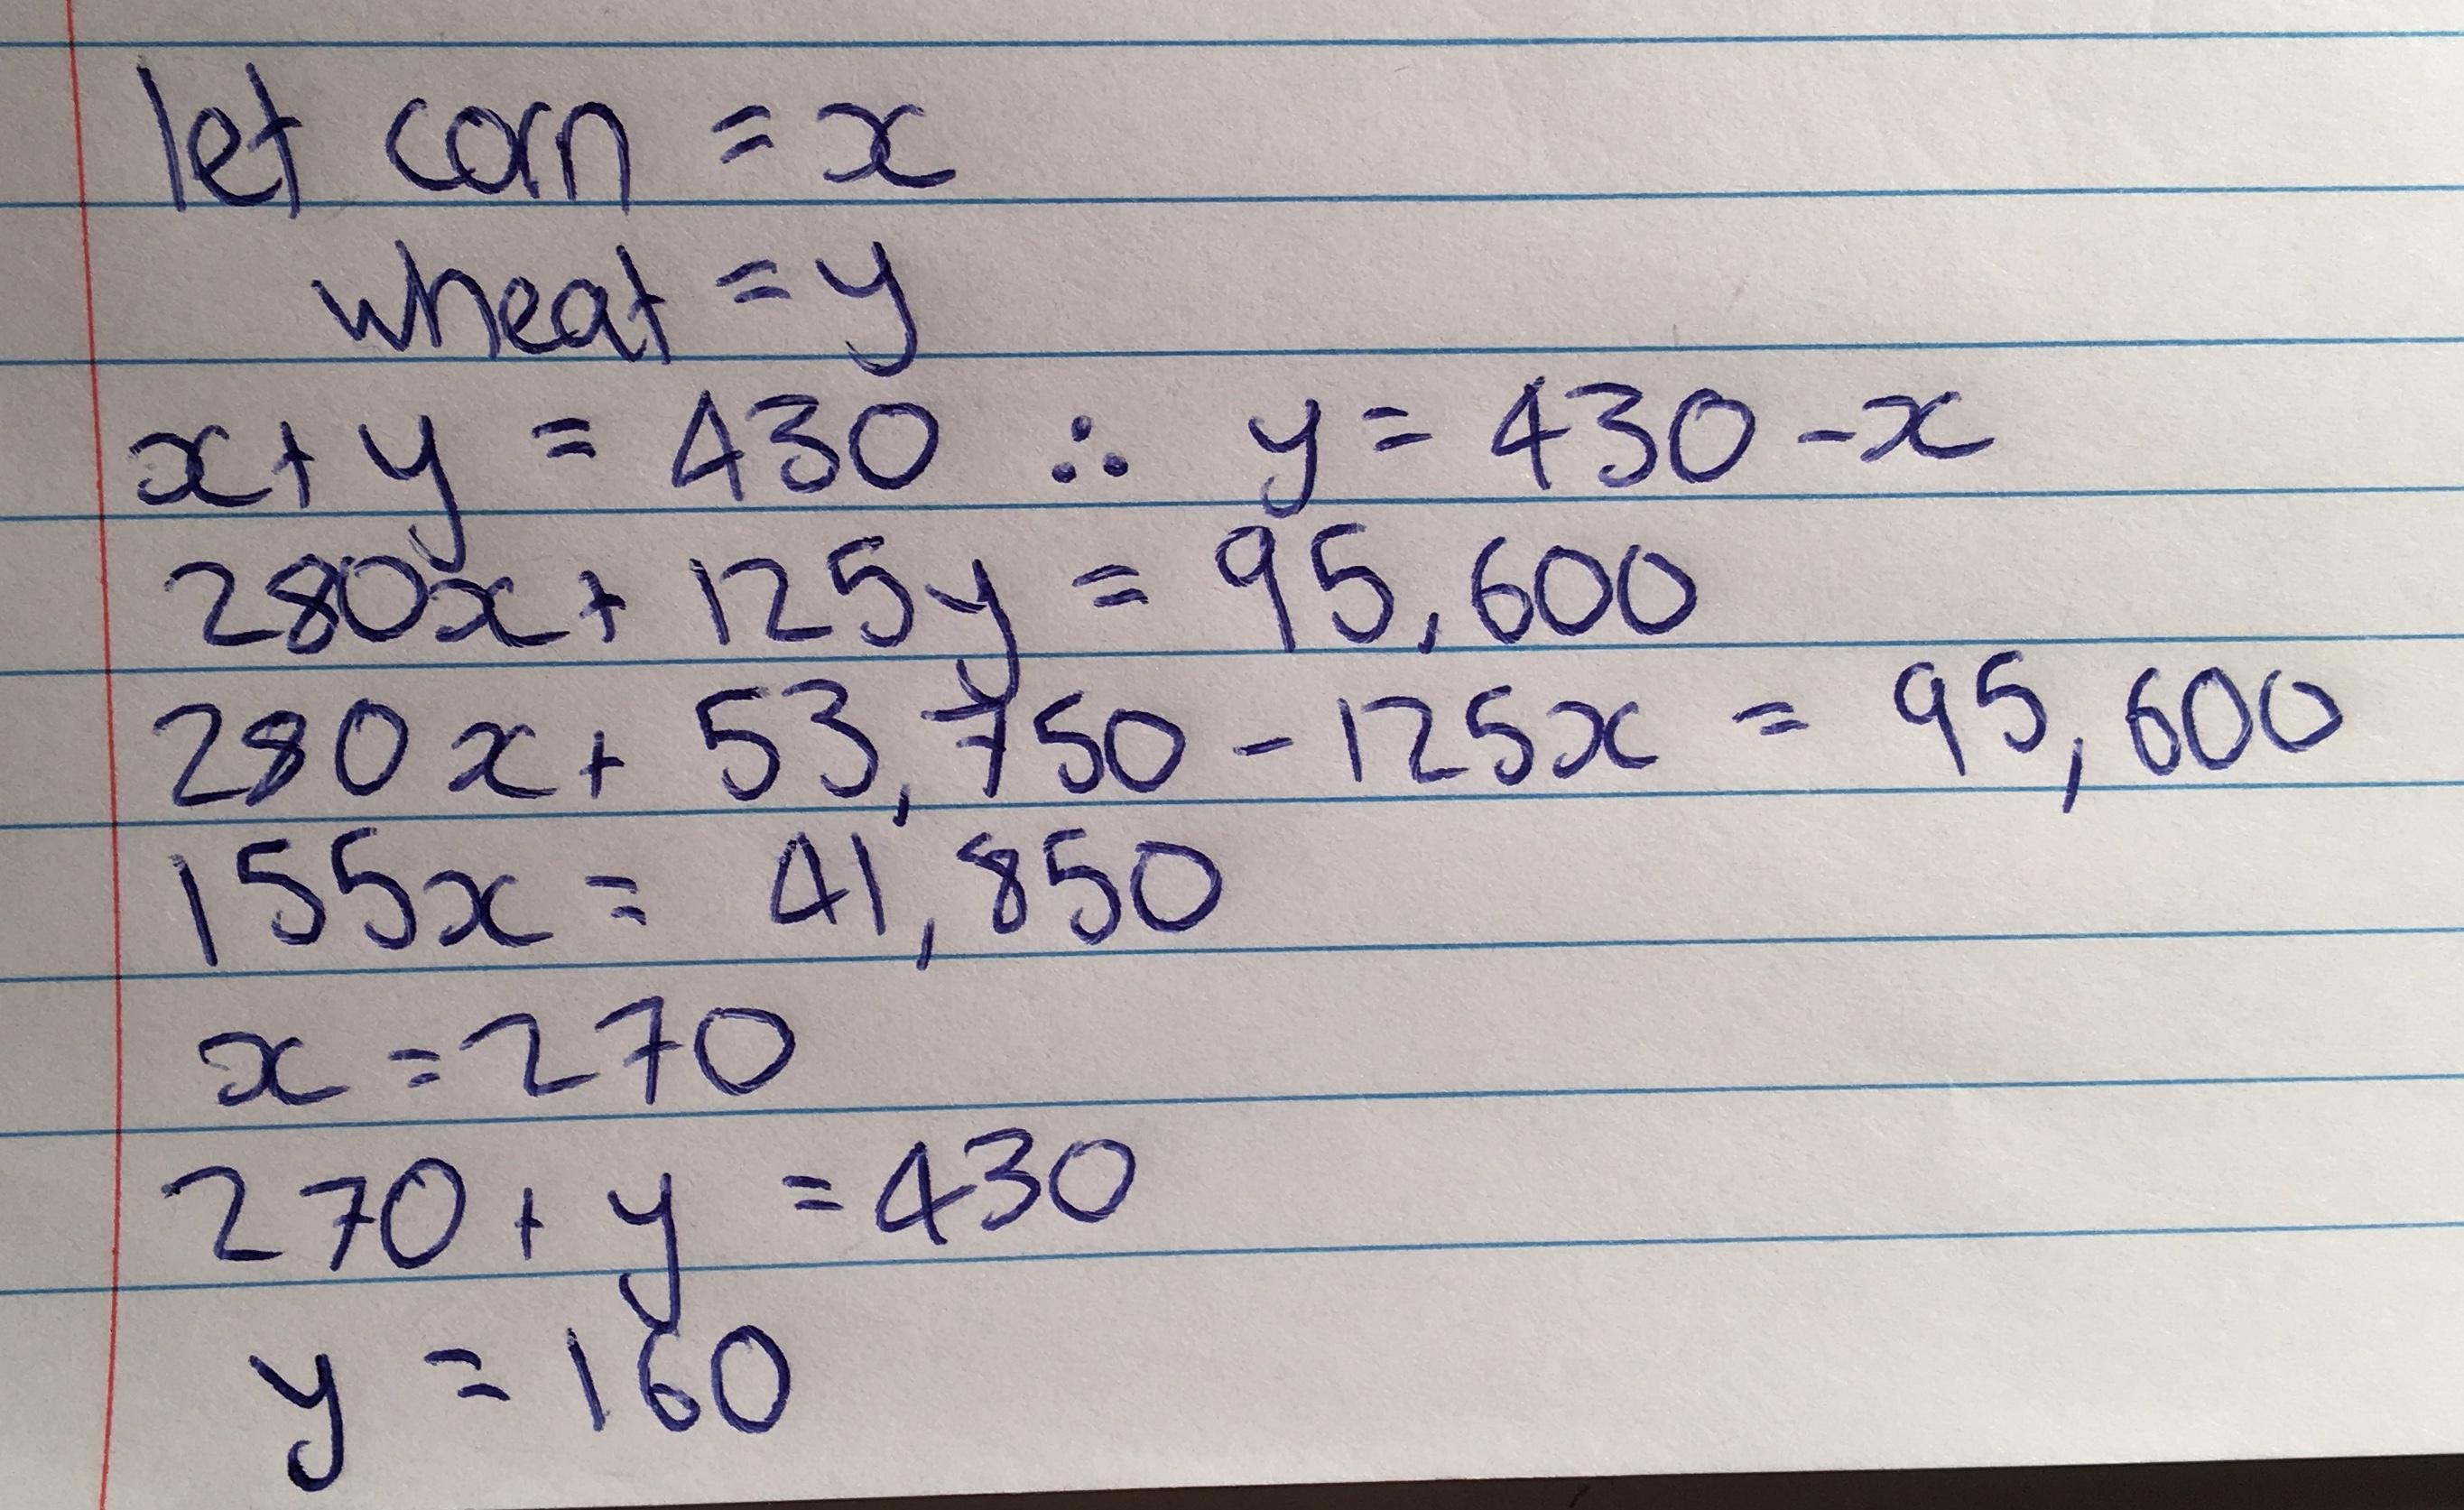 let corn = x
wheat = y
x + y = 430 ∴ y = 430 - x
280x + 125y = 95,600
280x + 53,750 - 125x = 95,600
155x = 41,850
x = 270
270 + y = 430
y = 160